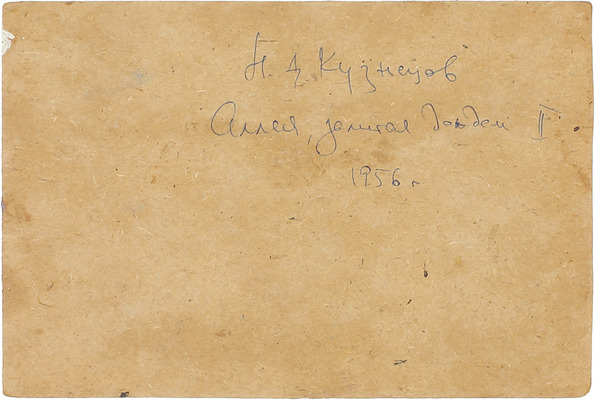 Н. Д Кузнецов
Аллея, залитая дождем II
1956 г